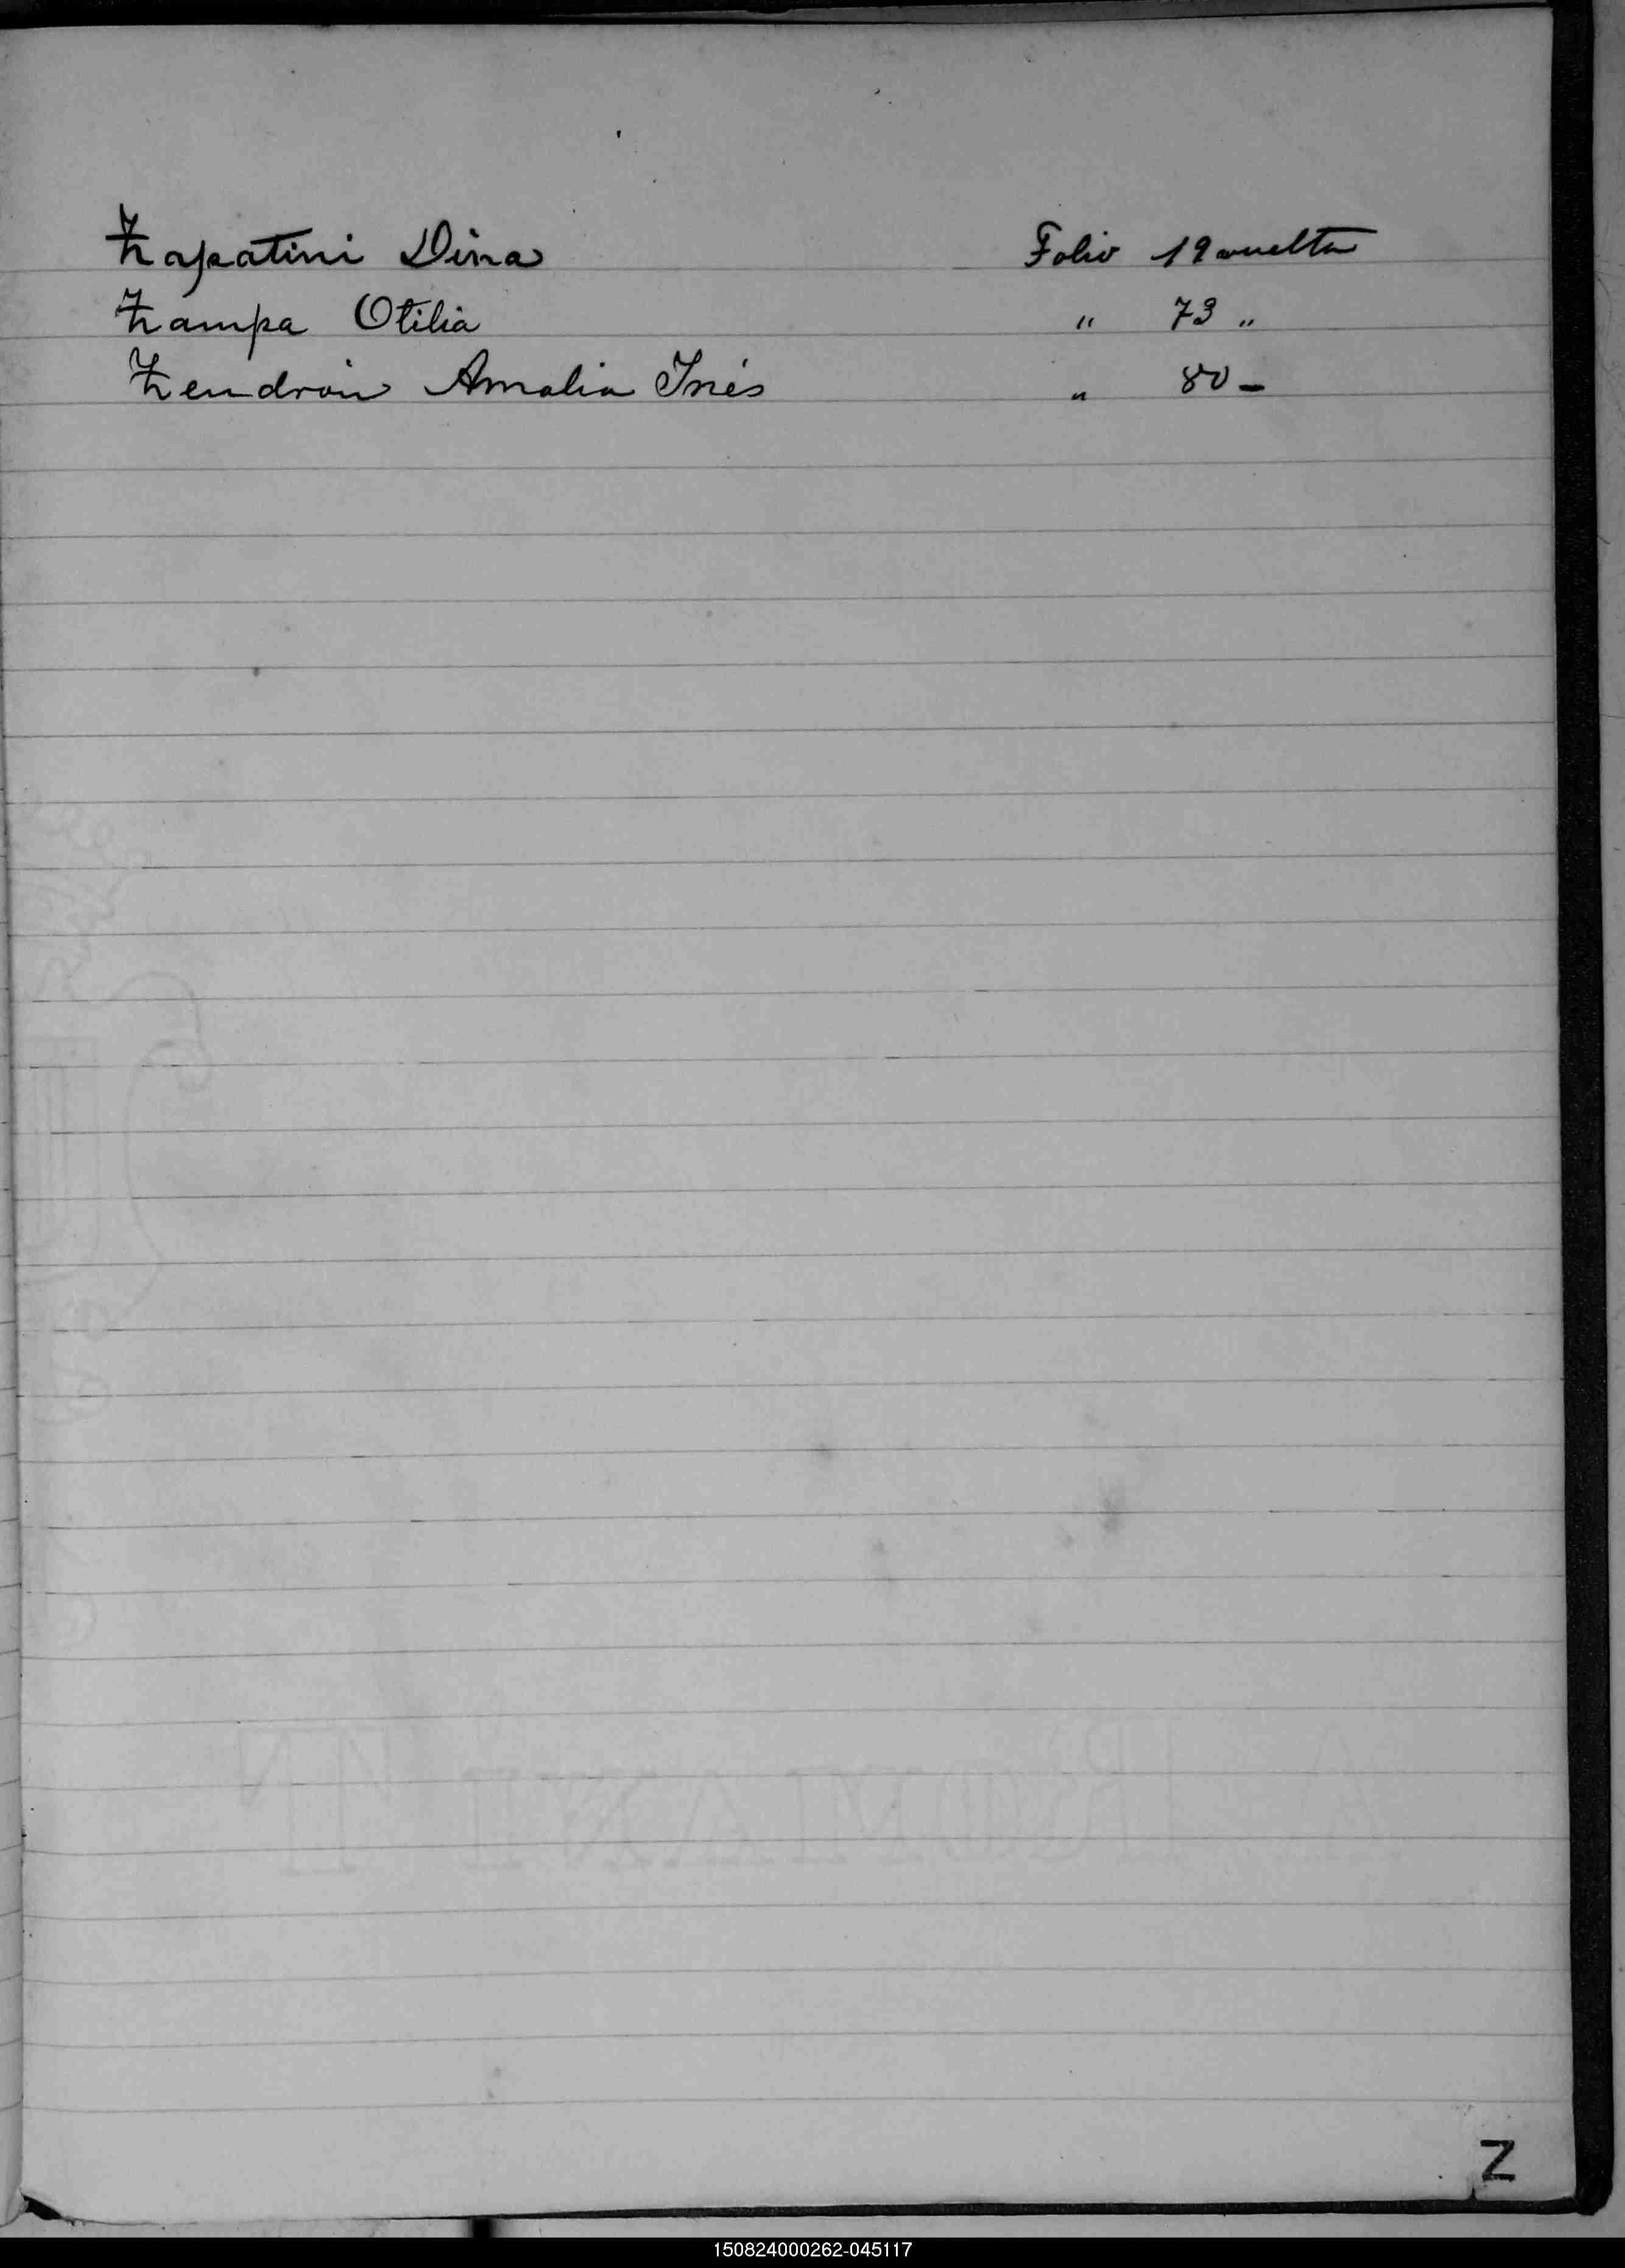 Zapatini Dina Folio 19 vuelta
Zampa Otilia " 73 "
Zendrón Amalia Inés " 80 -
Z
150824000262-045117